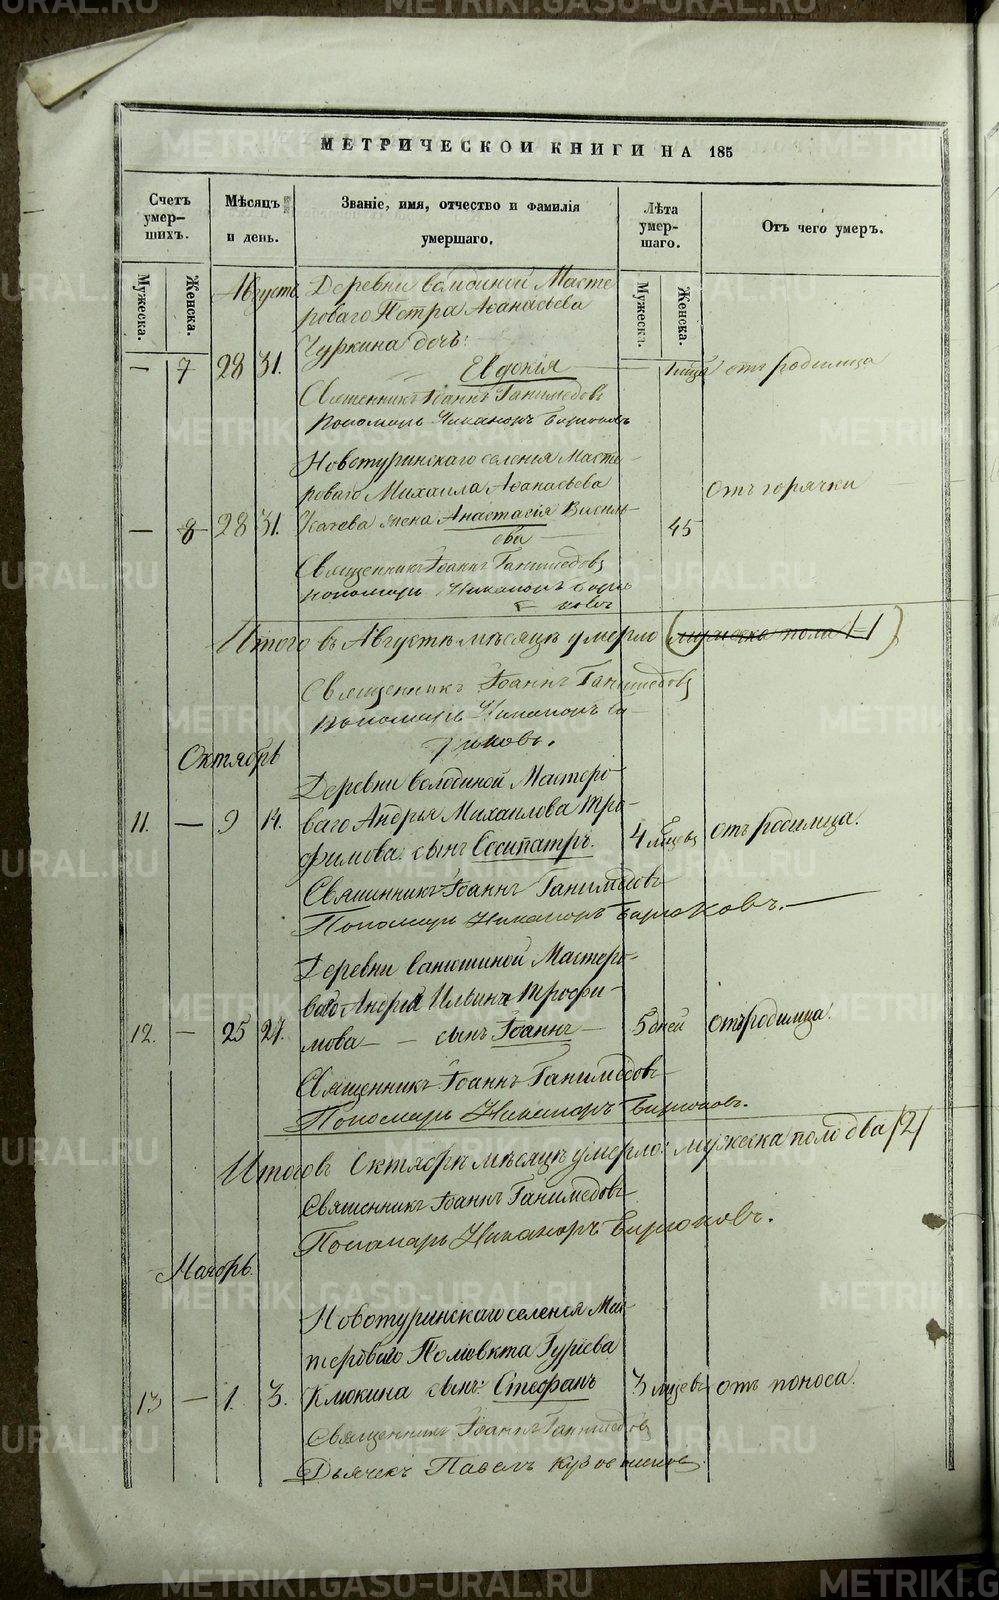 МЕТРИЧЕСКОИ КНИГИ НА 185
Счетъ умер-шихъ.
Мѣсяцъ и день.
Званіе, имя, отчество и фамилія умершаго.
Лѣта умер-шаго.
Отъ чего умеръ.
Мужеска.
Женска.
Мужеска.
Женска.
Августъ
Деревни Володиной Масте
роваго Петра Аѳанасьева
Чуркина дочь:
— 7 28 31. Евдокія от родимца
Священникъ Іоаннъ Ганимедовъ
пономарь Никаноръ Бирюковъ
Новотуринскаго селенія Масте-
роваго Михаила Аѳанасьева
отъ горячки
— 8 28 31. жена Анастасія Василь- 45
ева
Священникъ Іоаннъ Ганимедовъ
пономарь Никаноръ Бирю
ковъ
Итого въ Августѣ мѣсяцѣ умерло (мужеска пола 1-1)
Священникъ Іоаннъ Ганимедовъ
пономарь Никаноръ Би-
рюковъ.
Октябрь
Деревни Володиной Мастеро-
ваго Андрея Михаилова Тро-
11. — 9 14. фимова сынъ Сосипатръ. 4 отъ родимца.
Священникъ Іоаннъ Ганимедовъ
Пономарь Никаноръ Бирюковъ.
Деревни Ванюшиной Мастеро-
ваго Андрея Ильина Трофи-
12. — 25 27. мова — сынъ Іоаннъ — 5 дней отъ родимца.
Священникъ Іоаннъ Ганимедовъ
Пономарь Никаноръ Бирюковъ.
Итого въ Октябрѣ мѣсяцѣ умерло: мужеска пола два /2/
Священникъ Іоаннъ Ганимедовъ
Пономарь Никаноръ Бирюковъ.
Ноябрь.
Новотуринскаго селенія Мас-
тероваго Полиевкта Гуріева
13 — 1. 3. Клюкина сынъ: Стефанъ 3 отъ поноса.
Священникъ Іоаннъ Ганимедовъ
Дьячекъ Павелъ
METRIKI.GASO-URAL.RU